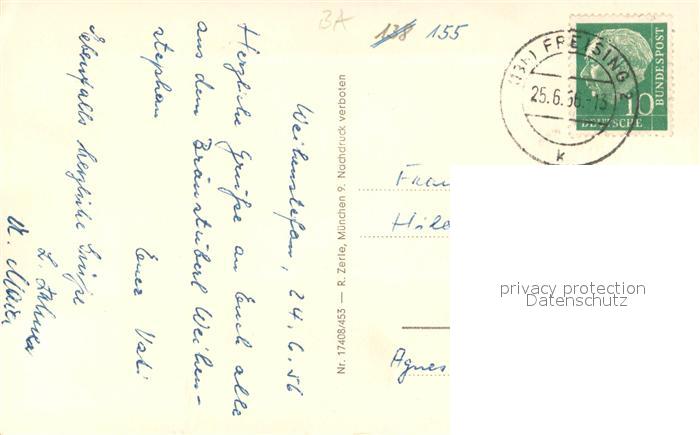 BA
138 155
(13b) FREISING 2
25.6.56.-13
k
10
DEUTSCHE
BUNDESPOST
Weihenstefan, 24.6.56
Herzliche Grüße an Euch alle
aus dem Bräustüberl Weihen-
stephan
Euer Vati
Ebenfalls herzliche Grüße
L.
A. Maier
Nr. 17408/453 — R. Zerle, München 9. Nachdruck verboten
Frau
Hilde
Agnes
privacy protection
Datenschutz